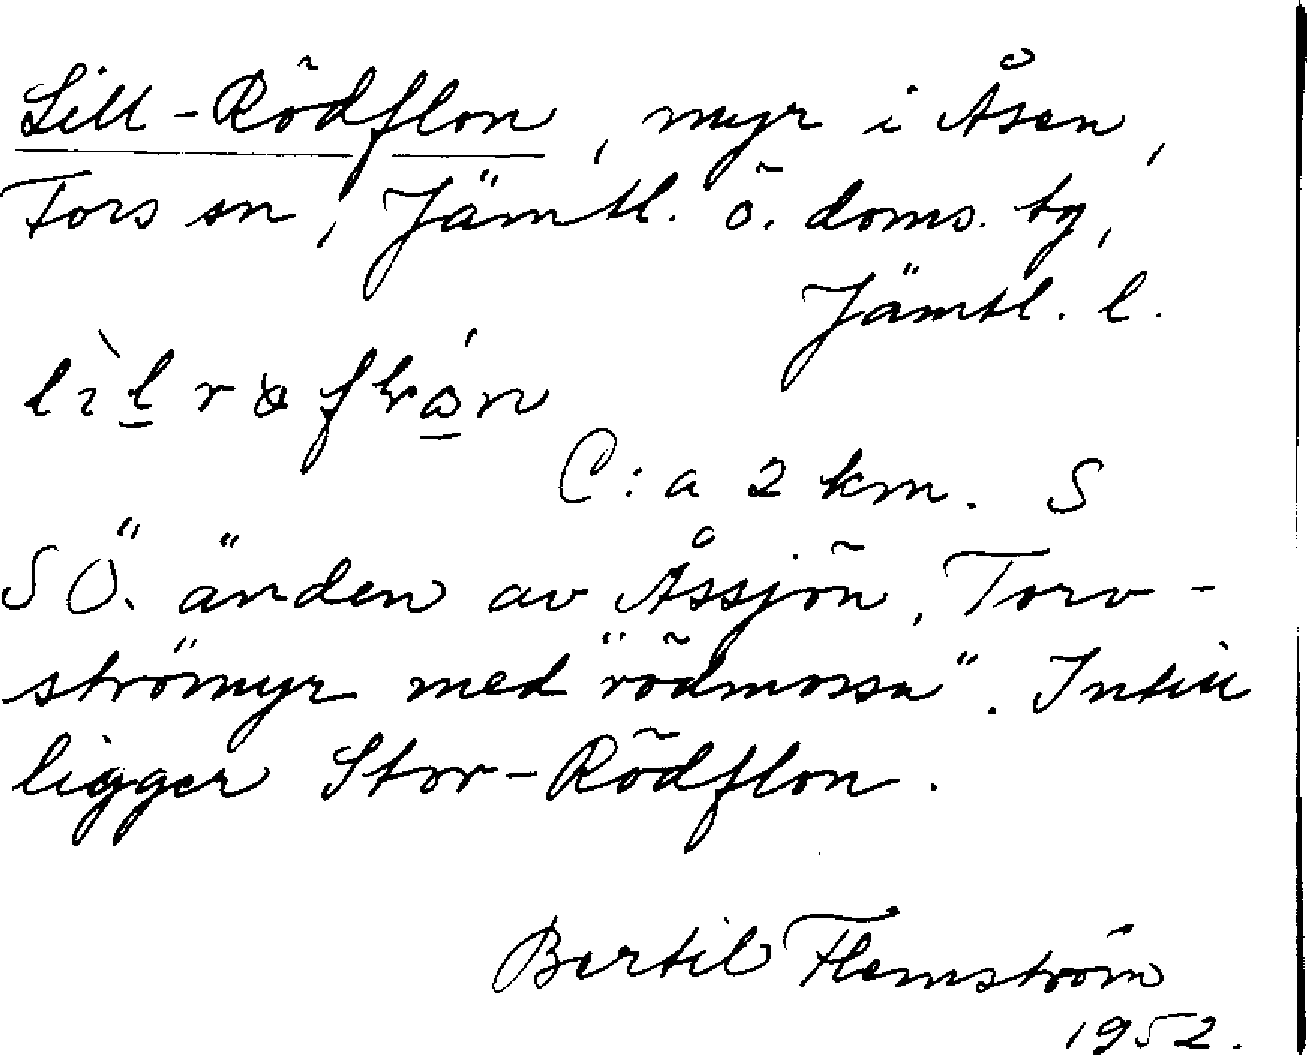 Lill-Rödflon, myr i Åsen,
Fors sn, Jämtl. ö. doms. tg,
Jämtl. l.
C:a 2 km. S
SÖ. änden av Åssjön. Torv-
strömyr med "rödmossa". Intill
ligger Stor-Rödflon.
Bertil Flemström
1952.